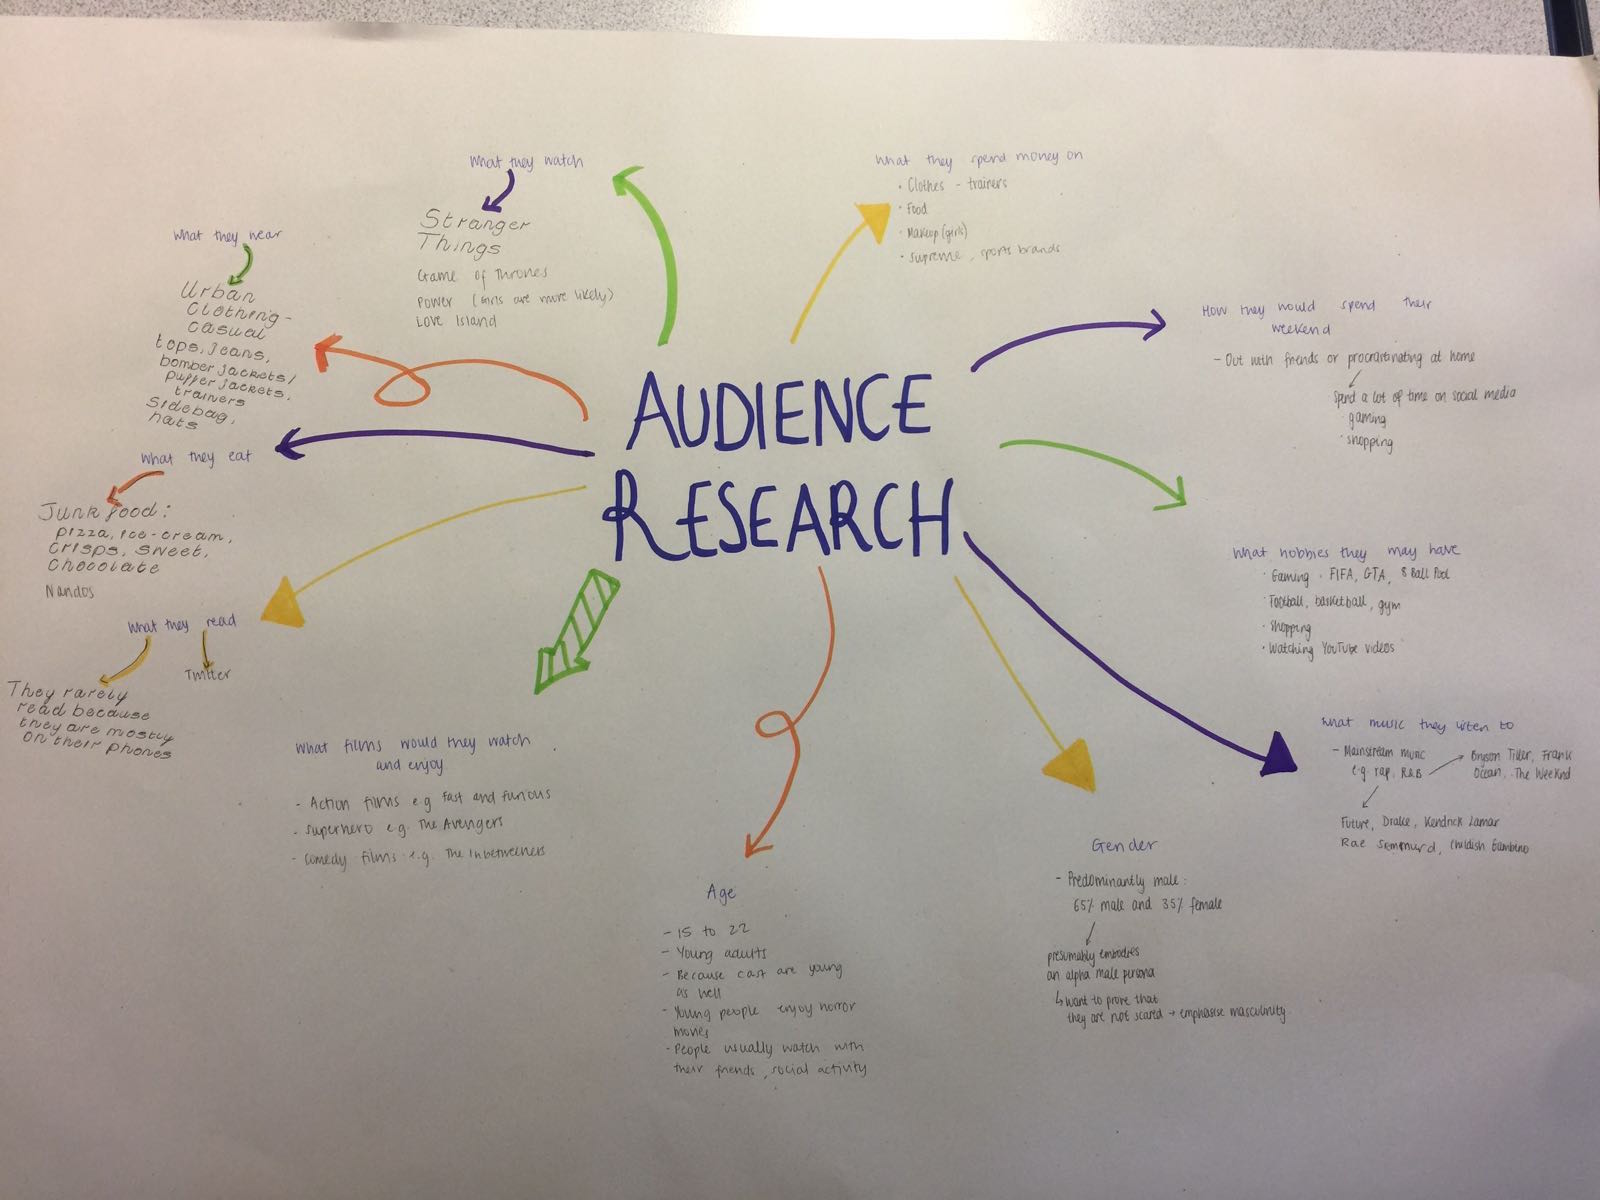 AUDIENCE
RESEARCH
What they watch
Stranger
Things
Game of Thrones
Power (Girls are more likely)
Love Island
What they spend money on
• Clothes - trainers
• Food
• Makeup (girls)
• Supreme, sports brands
How they would spend their
weekend
- Out with friends or procrastinating at home
Spend a lot of time on social media
· gaming
· shopping
What hobbies they may have
• Gaming • FIFA, GTA, 8 Ball Pool
• Football, basketball, gym
• Shopping
• Watching YouTube videos
What music they listen to
- Mainstream music
e.g. rap, R&B
Bryson Tiller, Frank
Ocean, The Weeknd
Future, Drake, Kendrick Lamar
Rae Semmurd, Childish Gambino
Gender
- Predominantly male:
65% male and 35% female
presumably embodies
an alpha male persona
↳ want to prove that
they are not scared → emphasise masculinity
Age
- 15 to 22
- Young adults
- Because cast are young
as well
- Young people enjoy horror
movies
- People usually watch with
their friends, social activity
What films would they watch
and enjoy
- Action films e.g Fast and Furious
- Superhero e.g. The Avengers
- Comedy films e.g. The Inbetweeners
What they read
Twitter
They rarely
read because
they are mostly
on their phones
What they eat
Junk food:
pizza, ice-cream,
crisps, sweet,
chocolate
Nandos
What they wear
Urban
Clothing -
casual
tops, jeans,
bomber jackets/
puffer jackets,
trainers
sidebag,
hats